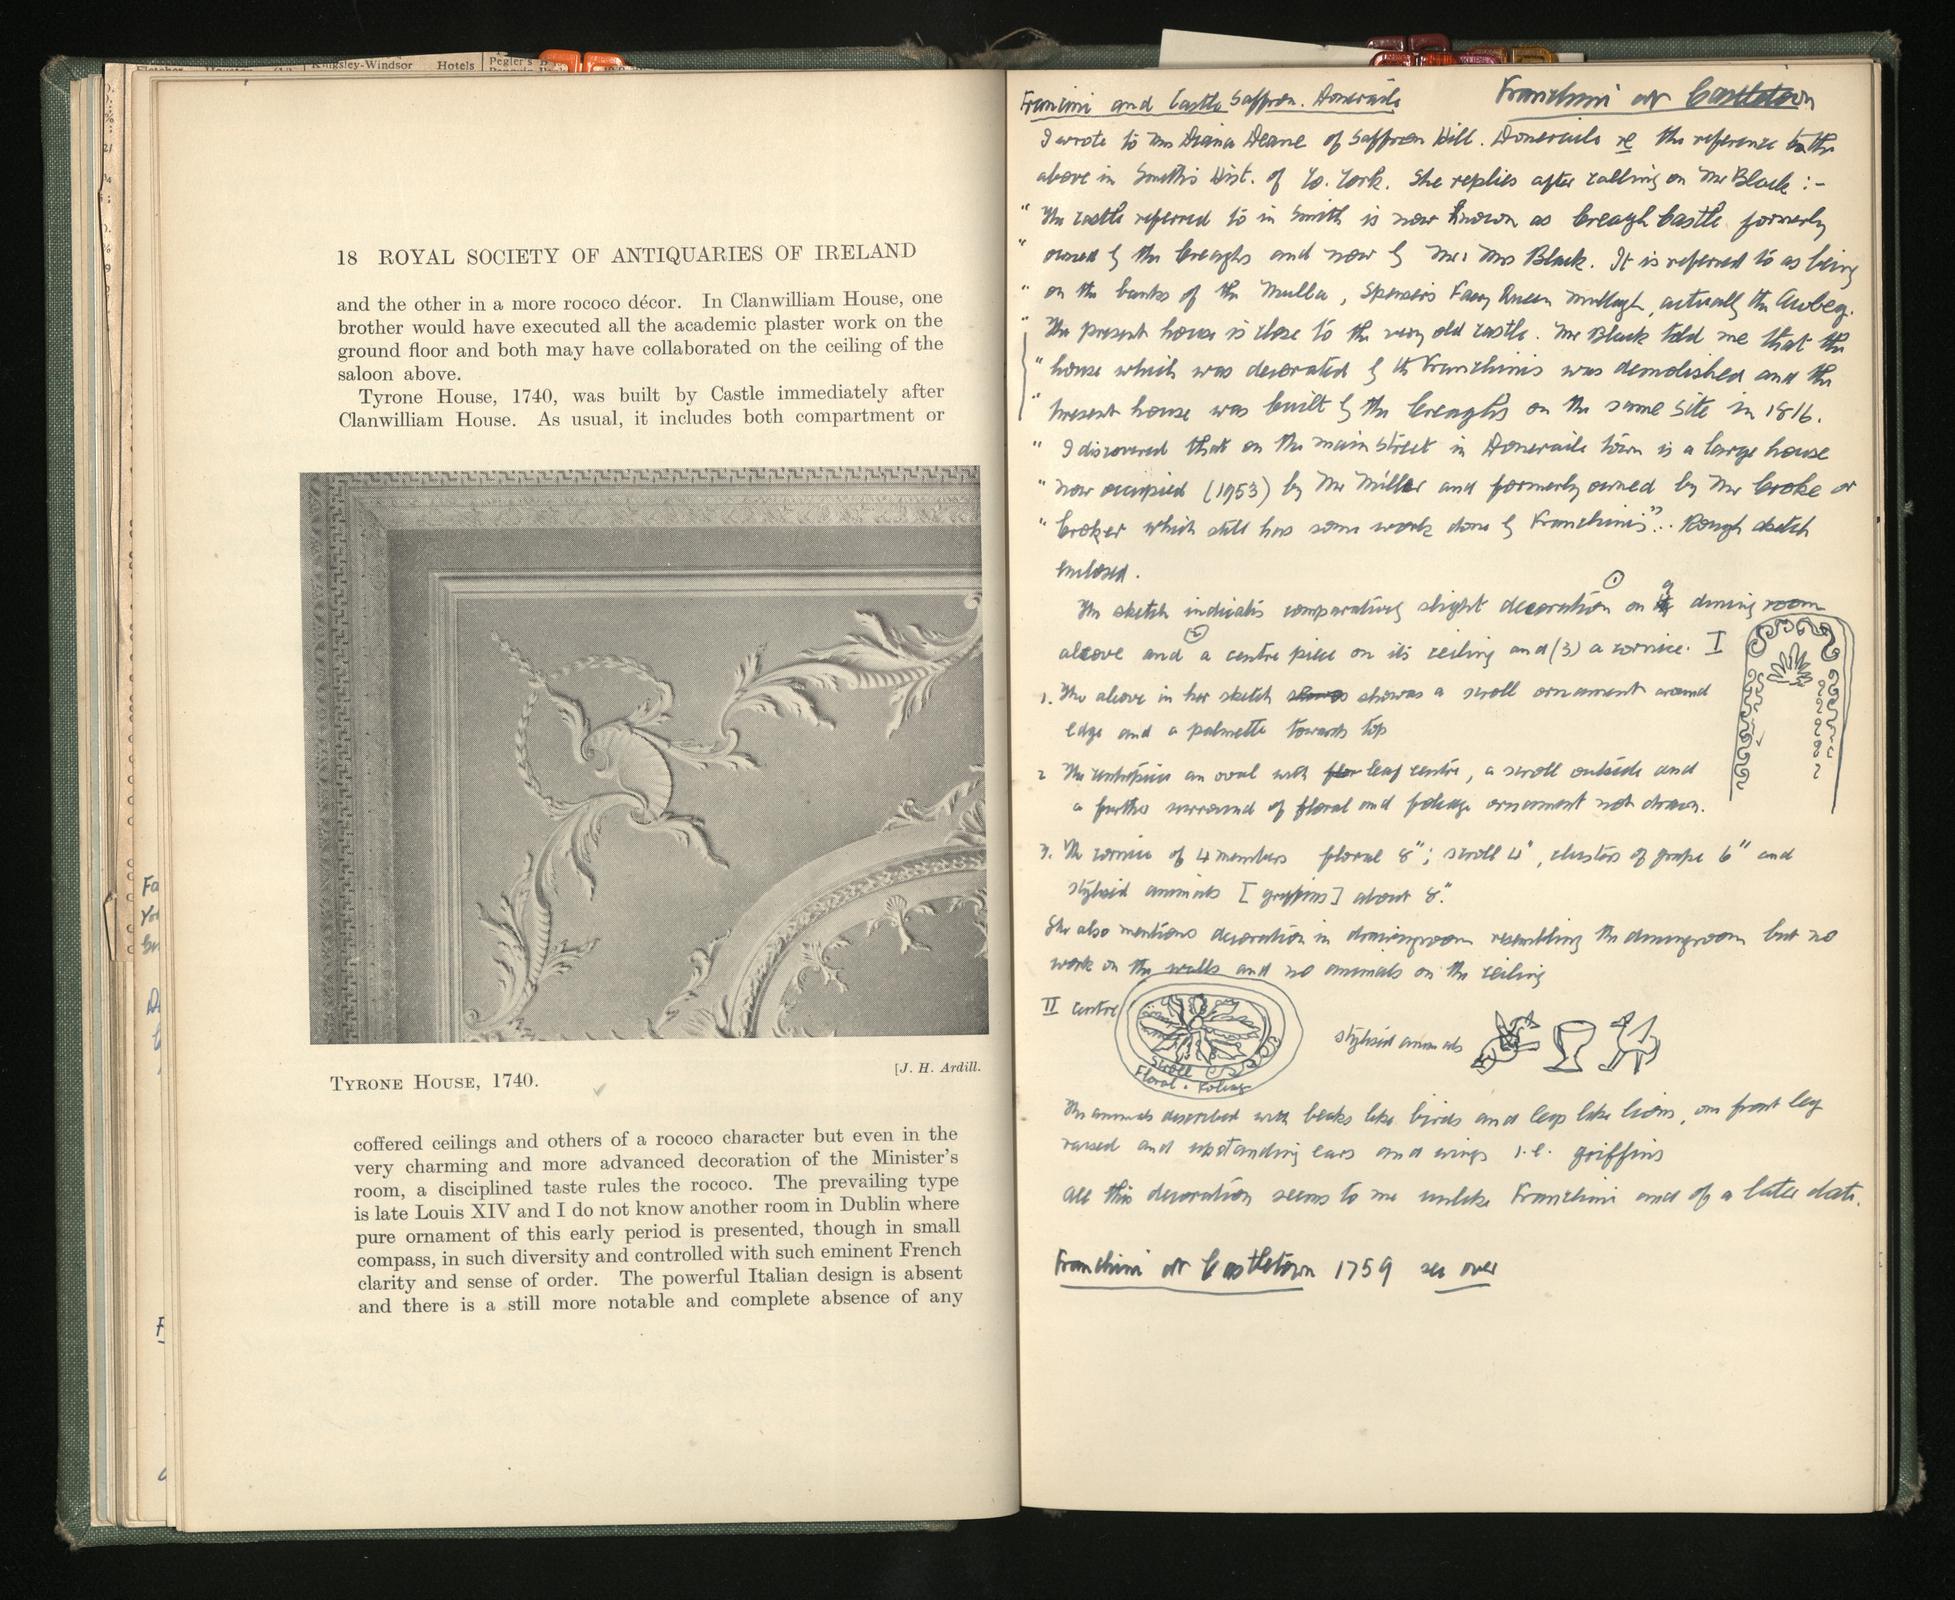 Kingsley-Windsor Hotels
Pegler's
18 ROYAL SOCIETY OF ANTIQUARIES OF IRELAND
and the other in a more rococo décor. In Clanwilliam House, one
brother would have executed all the academic plaster work on the
ground floor and both may have collaborated on the ceiling of the
saloon above.
Tyrone House, 1740, was built by Castle immediately after
Clanwilliam House. As usual, it includes both compartment or
[J. H. Ardill.
TYRONE HOUSE, 1740.
coffered ceilings and others of a rococo character but even in the
very charming and more advanced decoration of the Minister's
room, a disciplined taste rules the rococo. The prevailing type
is late Louis XIV and I do not know another room in Dublin where
pure ornament of this early period is presented, though in small
compass, in such diversity and controlled with such eminent French
clarity and sense of order. The powerful Italian design is absent
and there is a still more notable and complete absence of any
Francini and Castle Saffron. Doneraile
Franchini at Castletown
I wrote to Mrs Diana Deane of Saffron Hill. Doneraile re the reference to the
above in Smith's Hist. of Co. Cork. She replies after calling on Mr Black :-
" The castle referred to in Smith is now known as Creagh Castle formerly
" owned by the Creaghs and now by Mr & Mrs Black. It is referred to as being
" on the banks of the Mulla, Spensers Faery Queen Mullagh, actually the Awbeg.
" The present house is close to the very old castle. Mr Black told me that the
" house which was decorated by the Franchinis was demolished and the
" present house was built by the Creaghs on the same site in 1816.
" I discovered that on the main street in Doneraile town is a large house
" now occupied (1953) by Mr Miller and formerly owned by Mr Croke or
" Croker which still has some work done by Franchinis".. Rough sketch
enclosed.
The sketch indicates comparatively slight decoration (1) on a dining room
alcove and (2) a centre piece on its ceiling and (3) a cornice. I
1. The alcove in her sketch shows a scroll ornament around
edge and a palmette towards top
2 The centrepiece an oval with leaf centre, a scroll outside and
a further surround of floral and foliage ornament not drawn.
3. The cornice of 4 members floral 8"; scroll 4", clusters of grape 6" and
stylised animals [griffins] about 8".
She also mentions decoration in drawingroom resembling the diningroom but no
work on the walls and no animals on the ceiling
II centre
Scroll
Floral & Foliage
stylised animals
The animals described with beaks like birds and legs like lions, one front leg
raised and upstanding ears and wings i.e. griffins
All this decoration seems to me unlike Franchini and of a later date.
Franchini at Castletown 1759 see over